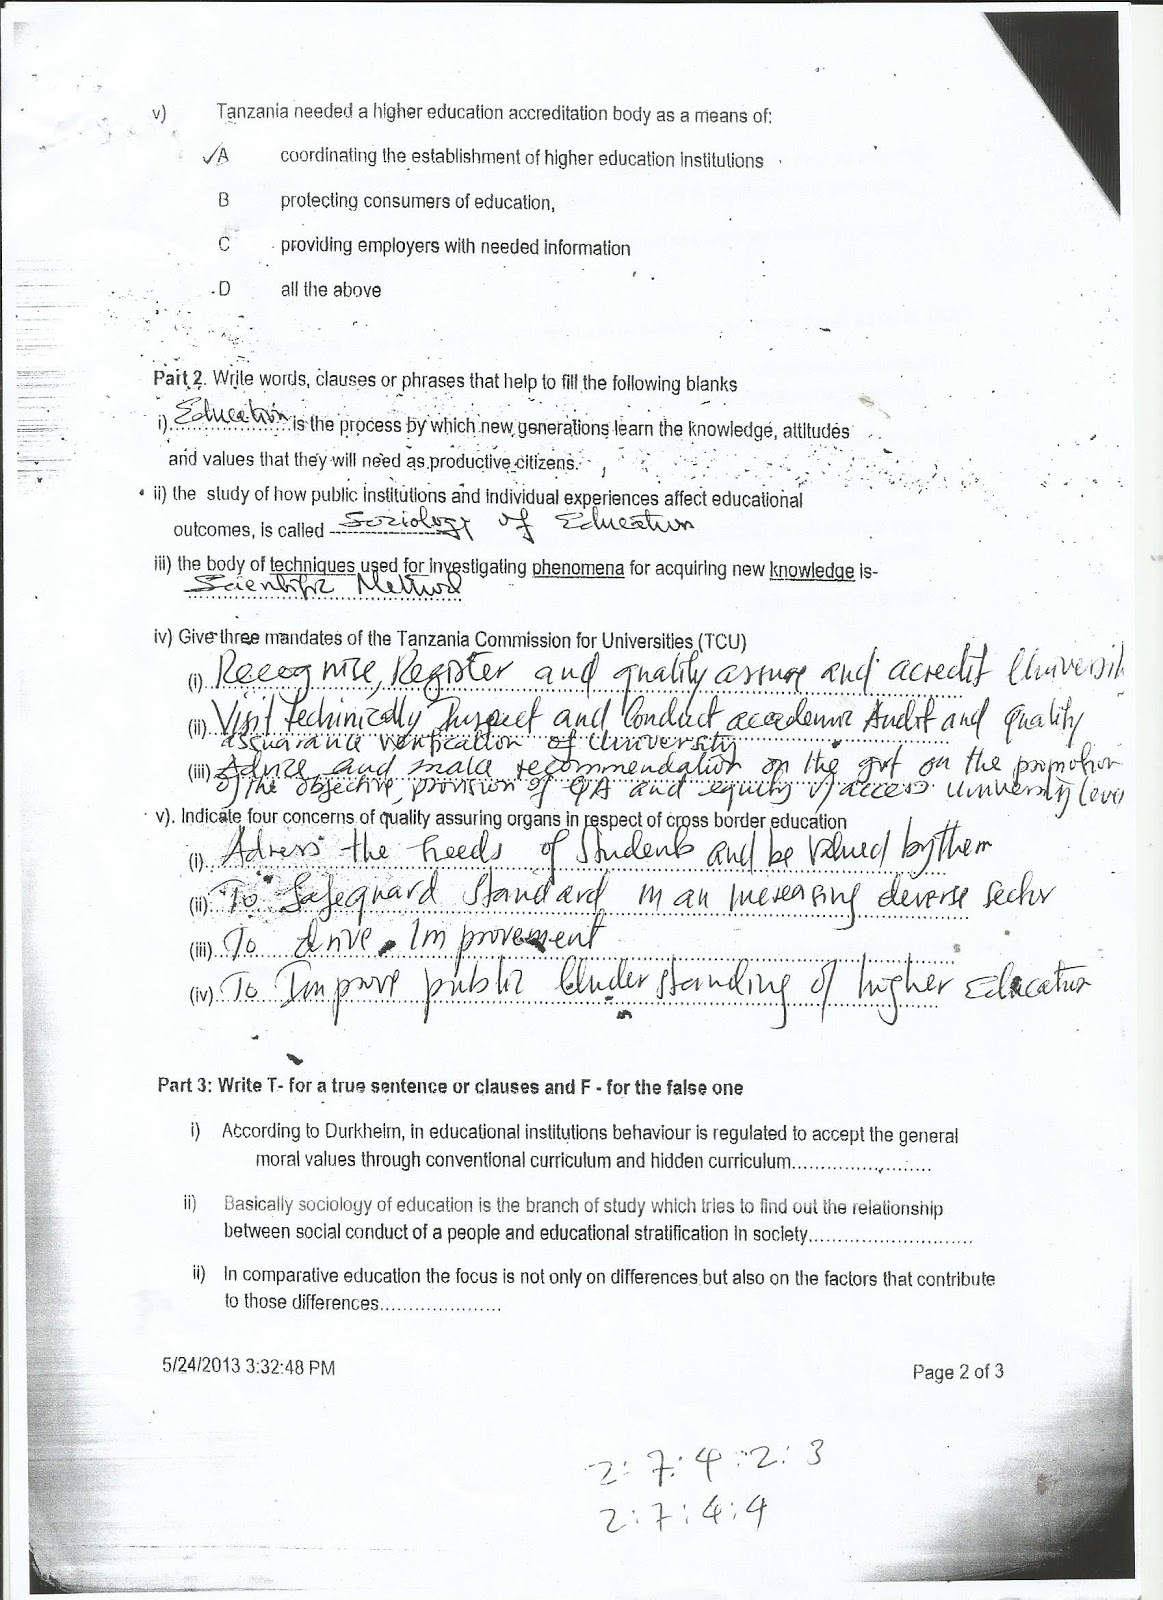 v) Tanzania needed a higher education accreditation body as a means of:
✓A coordinating the establishment of higher education institutions
B protecting consumers of education,
C providing employers with needed information
D all the above
Part 2. Write words, clauses or phrases that help to fill the following blanks
i) Education is the process by which new generations learn the knowledge, attitudes
and values that they will need as productive citizens.
ii) the study of how public institutions and individual experiences affect educational
outcomes, is called Sociology of Education
iii) the body of techniques used for investigating phenomena for acquiring new knowledge is-
Scientific Method
iv) Give three mandates of the Tanzania Commission for Universities (TCU)
(i) Recognise, Register and quality assure and acredit Universit
(ii) Visit Techinically Inspect and Conduct academic Audit and quality
assuarance verification of University
(iii) Advice and make recommendation on the govt on the promotion
of the objective, provision of QA and equity of access University leve
v). Indicate four concerns of quality assuring organs in respect of cross border education
(i) Adress the needs of Students and be Valued by them
(ii) To Safeguard Standard in an increasing deverse sector
(iii) To drive Improvement
(iv) To Improve public Understanding of higher Education
Part 3: Write T- for a true sentence or clauses and F - for the false one
i) According to Durkheim, in educational institutions behaviour is regulated to accept the general
moral values through conventional curriculum and hidden curriculum........................
ii) Basically sociology of education is the branch of study which tries to find out the relationship
between social conduct of a people and educational stratification in society............................
ii) In comparative education the focus is not only on differences but also on the factors that contribute
to those differences.....................
5/24/2013 3:32:48 PM Page 2 of 3
2:7:4:2:3
2:7:4:4